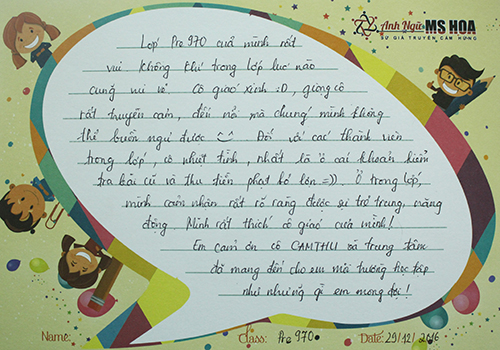 Anh Ngữ MS HOA
SỨ GIẢ TRUYỀN CẢM HỨNG
Lớp Pre 970 của mình rất
vui. Không khí trong lớp lúc nào
cũng vui vẻ. Cô giáo xinh :D, giọng cô
rất truyền cảm, đến nỗi mà chúng mình không
thể buồn ngủ được. Đối với các thành viên
trong lớp, cô nhiệt tình, nhất là ở cái khoản kiểm
tra bài cũ và thu tiền phạt bỏ lợn =)). Ở trong lớp,
mình cảm nhận rất rõ ràng được sự trẻ trung, năng
động. Mình rất thích cô giáo của mình!
Em cảm ơn cô CAMTHU và trung tâm
đã mang đến cho em môi trường học tập
như những gì em mong đợi!
Name:
Class: Pre 970
Date: 29/12/2016